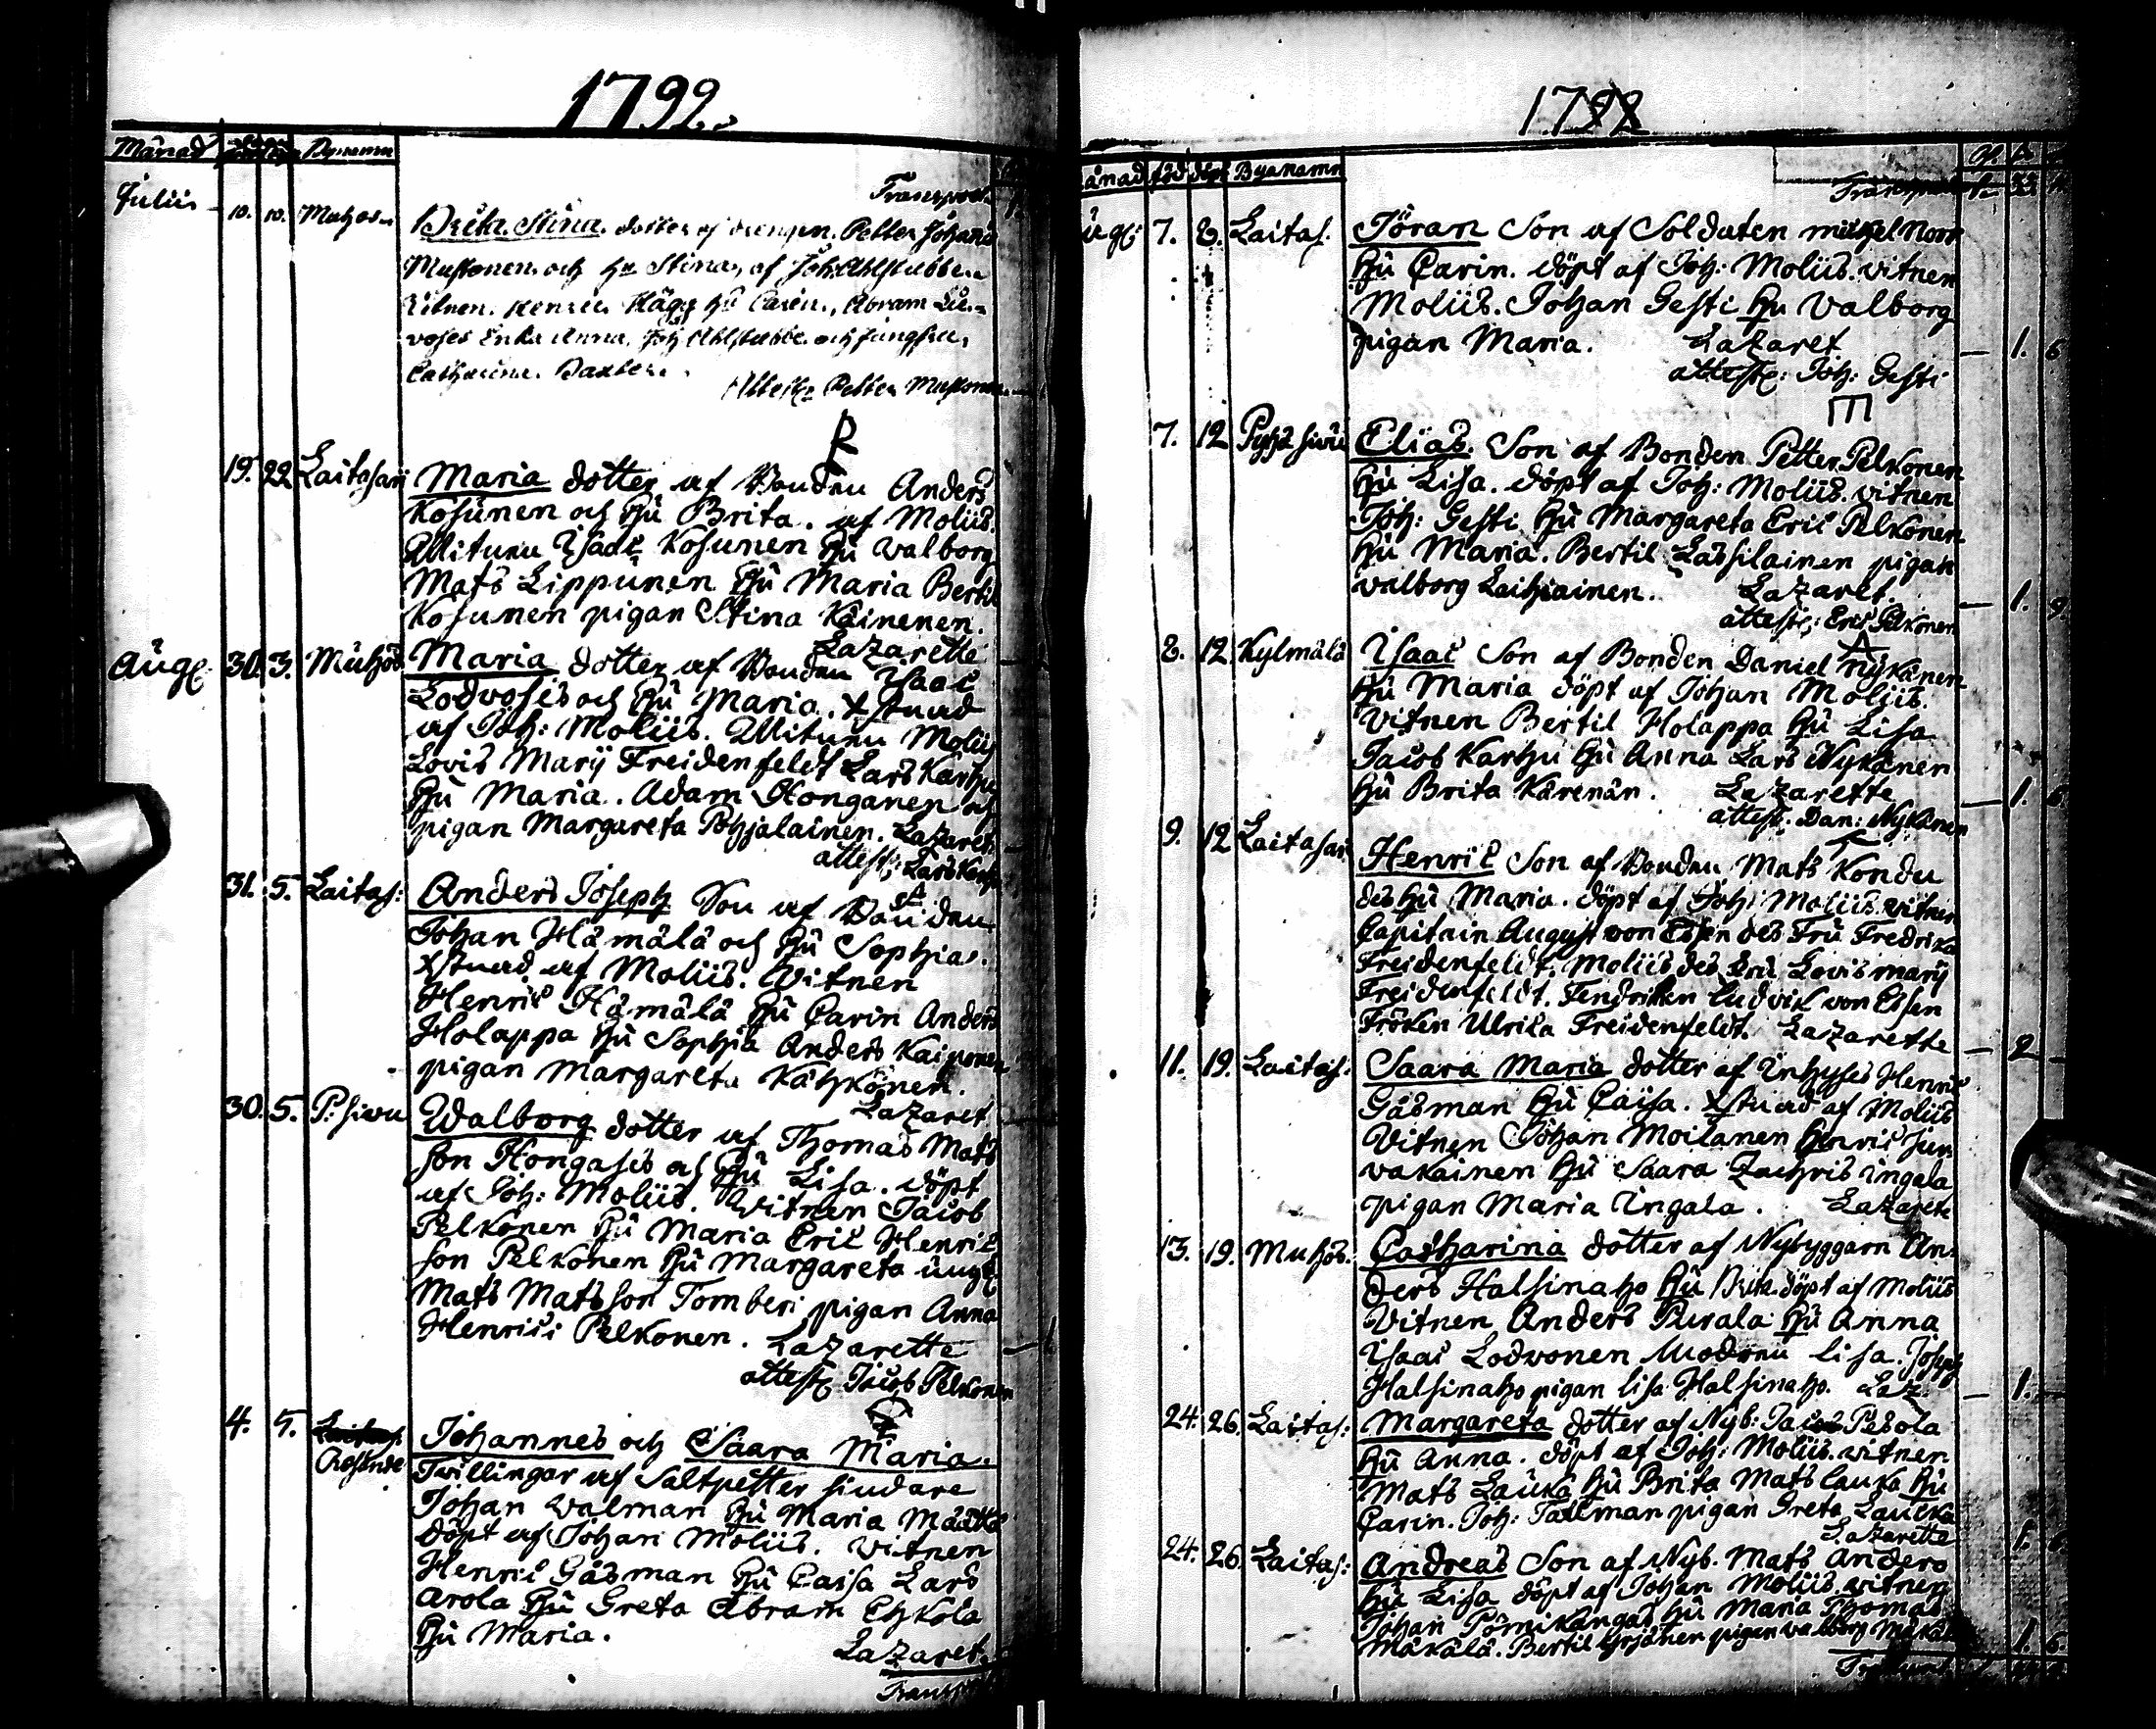 1792.
Månad Bynamn
Julii 10. 10. Muhos
Transport
Brita Stina. dotter af drengen. Petter Johans
Mustonen och hu Stina, af Joh: Ahlstubbe
Vitnen. Henric Hägg hu Carin, Abram
Enka Anna, Joh Ahlstubbe och Jungfru
Catharina.
Attest: Petter Mustonen
19. 22 Laitasari Maria dotter af Bonden Anders
Kosunen och Hu Brita. af Moliis.
Witnen Isaac Kosunen Hu Walborg
Mats Lippunen Hu Maria Bertil
Kosunen pigan Stina Käinenen.
Lazarette
Aug: 30. 3. Muhos Maria dotter af Bonden Isaac
Lodvoses och Hu Maria. Xstnad
af Joh: Moliis. Witnen Moliis
Lovis Marij Freidenfeldt Lars Karhu
Hu Maria. Adam Honganen och
pigan Margareta Pohjalainen. Lazaret:
attest: Lars Karhu
31. 5. Laitas: Anders Joseph Son af Bonden
Johan Hämälä och Hu Sophia.
Xstnad af Moliis. Witnen
Henric Hämälä Hu Carin Anders
Holappa Hu Sophia Anders Kaiponen
pigan Margareta Kähkönen.
Lazaret
30. 5. P: sivu Walborg dotter af Thomas Mats
son Hongases och Hu Lisa. döpt
af Joh: Moliis. Witnen Jacob
Pelkonen Hu Maria Eric Henric
son Pelkonen Hu Margareta ung
Mats Matsson Tomberi pigan Anna
Henrici Pelkonen. Lazarette
attest: Jacob Pelkonen
4. 5. Laitas: Johannes och Saara Maria.
Twillingar af Saltpetter siudare
Johan Walman Hu Maria Määttä
döpt af Johan Moliis. Witnen
Henric Gåsman Hu Caisa Lars
Arola Hu Greta Abram Ehkola
Hu Maria.
Lazaret.
Transport
1792
Månad föd döpt Byanamn
Transport
Aug: 7. 8. Laitas: Jöran Son af Soldaten Michel Norr
Hu Carin. döpt af Joh: Moliis. vitnen
Moliis. Johan Gesti Hu Valborg
pigan Maria. Lazaret — 1. 6
attest: Joh: Gesti
7. 12 Pyhä sivu Elias. Son af Bonden Petter Pelkonen
Hu Lisa. döpt af Joh: Moliis. vitnen
Joh: Gesti Hu Margareta Eric Pelkonen
Hu Maria. Bertil Lassilainen pigan
Walborg Laitiainen. Lazaret. — 1. 9.
attest: Eric Pelkonen
8. 12 Kylmälä Isaac Son af Bonden Daniel Nykänen
Hu Maria döpt af Johan Moliis.
Vitnen Bertil Holappa Hu Lisa
Jacob Karhu Hu Anna Lars Nykänen
Hu Brita Kärenän. Lazarette — 1. 6
attest. Dan: Nykänen
9. 12 Laitasari Henric Son af Bonden Mats Kondu
des Hu Maria. döpt af Joh: Moliis. vitnen
Capitain August von Essen des Fru Fredrika
Freidenfeldt. Moliis des Fru Lovis Marij
Freidenfeldt. Fendriken Ludvik von Essen
Fröken Ulrika Freidenfeldt. Lazarette — 2
11. 19. Laitas: Saara Maria dotter af Inhyses Henric
Gåsman Hu Caisa. Xstnad af Moliis
Vitnen Johan Moilanen Henric
Hu Saara Zachris Ingala
pigan Maria Ingala. Lazarete
13. 19. Muhos. Catharina dotter af Nybyggarn An-
ders Halsinaho Hu Brita. döpt af Moliis
Vitnen Anders Purala Hu Anna
Isaac Lodvonen Lisa. Joseph
Halsinaho pigan Lisa Halsinaho. Laz — 1.
24. 26. Laitas: Margareta dotter af Nyb: Jacob Pesola
Hu Anna. döpt af Joh: Moliis. vitnen
Mats Lauka Hu Brita Mats Lauka Hu
Carin. Joh: Tallman pigan Greta Laucka
Lazarette
24. 26. Laitas: Andreas Son af Nyb. Mats Anders
Hu Lisa döpt af Johan Moliis. vitnen
Johan Pörnikangas Hu Maria Thomas
Mäkälä. Bertil Yrjänen pigan Walborg Mäkälä 1. 6